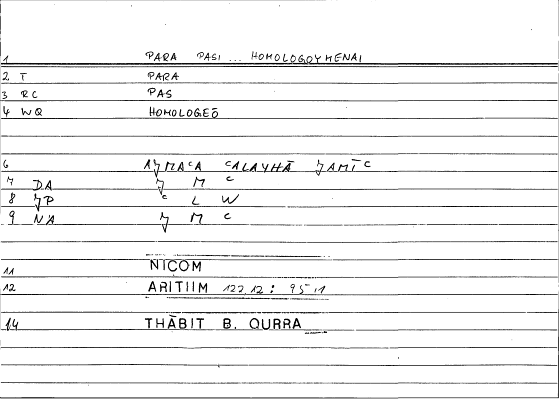 1 PARA PASI ... HOMOLOGOYMENAI
2 T PARA
3 RC PAS
4 WQ HOMOLOGEŌ
6 AǦMAʿA ʿALAYHĀ ǦAMĪʿ
7 DA Ǧ M ʿ
8 ǦP ʿ L W
9 NA Ǧ M ʿ
11 NICOM
12 ARITIIM 122,12 : 95,11
14 THĀBIT B. QURRA